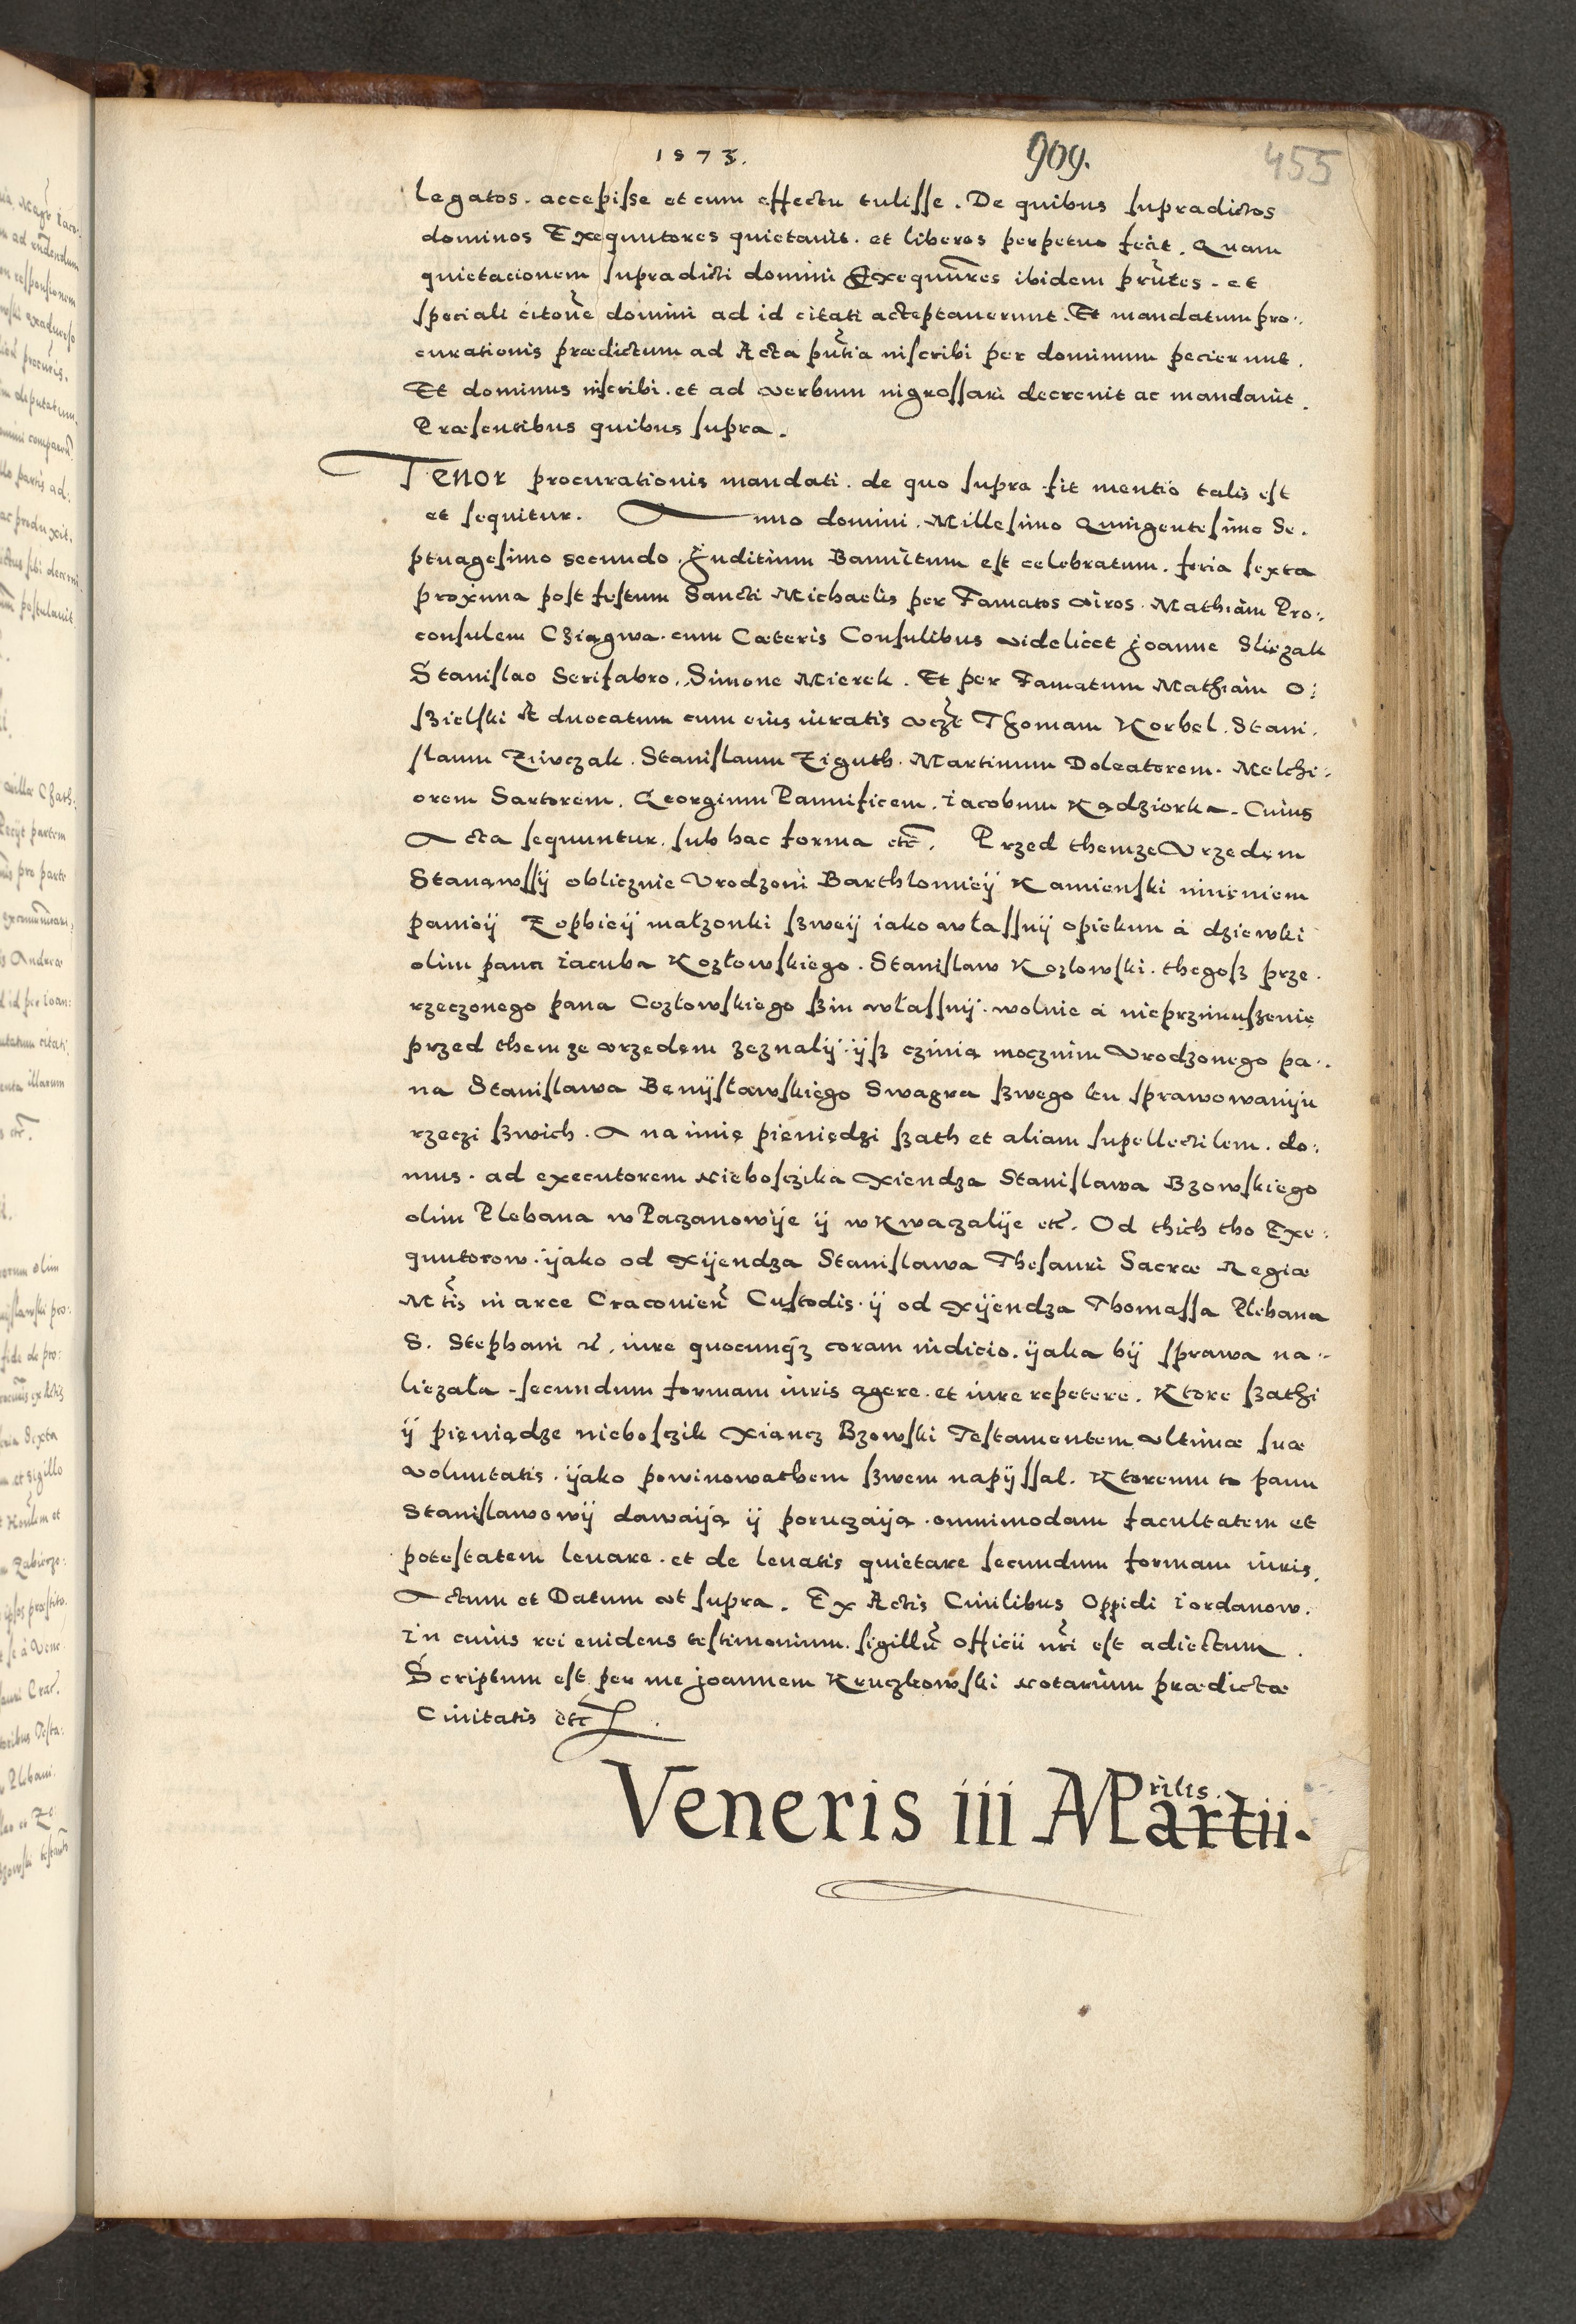 1573.
909.
455
legatos. accepisse et cum effectu tulisse. De quibus supradictos
dominos Exequutores quietavit. et liberos perpetuo fecit. Quam
quietacionem supradicti domini Exequutres ibidem pñtes. et
speciali citone domini ad id citati acceptaverunt. Et mandatum pro:
curationis prædictum ad Acta pñtia inscribi per dominum pecierunt.
Et dominus inscribi. et ad verbum ingrossari decrevit ac mandavit.
Præsentibus quibus supra.
Tenor procurationis mandati. de quo supra fit mentio talis est
et sequitur. Anno domini. Millesimo Quingentesimo Se.
ptuagesimo secundo. Juditium Bannitum est celebratum. feria sexta
proxima post festum Sancti Michaelis per Famatos viros. Mathiam Pro:
consulem Cziągwa. cum Cæteris Consulibus videlicet Joanne Sliezak
Stanislao Serifabro. Simone Mierek. Et per Famatum Mathiam O:
szielski Advocatum cum eius iuratis vczt Thomam Korbel. Stani.
slaum Ziwczak. Stanislaum Ziguth. Martinum Doleatorem. Melchi:
orem Sartorem. Georgium Pannificem. Iacobum Kądziorka. Cuius
Acta sequuntur. sub hac forma etc. Przed themze Vrzedem
Stanąwssÿ oblicznie Vrodzoni Barthlomieÿ Kamienski imieniem
panieÿ Zophieÿ małzonki szweÿ iako własnÿ opiekun á dziewki
olim pana iacuba Kozłowskiego. Stanislaw Kozlowski. thegosz prze.
rzeczonego pana Cozłowskiego szin własnÿ. wolnie á nieprzimuszenię
przed them ze vrzedem zeznalÿ. ÿsz czinią mocznim Vrodzonego pa:
na Stanislawa Benÿsławskiego Swagra szwego ku sprawowaniju
rzeczi szwich. A na imię pieniędzi szath et aliam supellectilem. do:
mus. ad executorem Niebosczika Xiendza Stanislawa Bzowskiego
olim Plebana w Paczanowÿe ÿ w Kwaczalÿe etc. Od thich tho Exe:
qutorow. ÿako od Xÿendza Stanislawa Thesauri Sacræ Regiæ
Mtis in arce Cracovien Custodis. ÿ od Xÿendza Thomassa Plebana
S. Stephani etc. iure quocunqz coram iudicio. ÿaka bÿ sprawa na:
liezała. secundum formam iuris agere. et iure repetere. Ktore szathi
ÿ pieniądze niebosczik Xiancz Bzowski Testamentem vltimæ suæ
voluntatis. ÿako powinowathem szwem napÿssal. Ktoremu to panu
Stanislawowÿ dawaiją ÿ poruczaiją. omnimodam facultatem et
potestatem levare. et de levatis quietare secundum formam iuris.
Actum et Datum vt supra. Ex Actis Civilibus Oppidi Iordanow.
In cuius rei evidens testimonium. sigillū officii nri est adiectum.
Scriptum est per me Joannem Kruczkowski Notarium prædictæ
Civitatis etc.
Veneris iii APrilis. Martii.